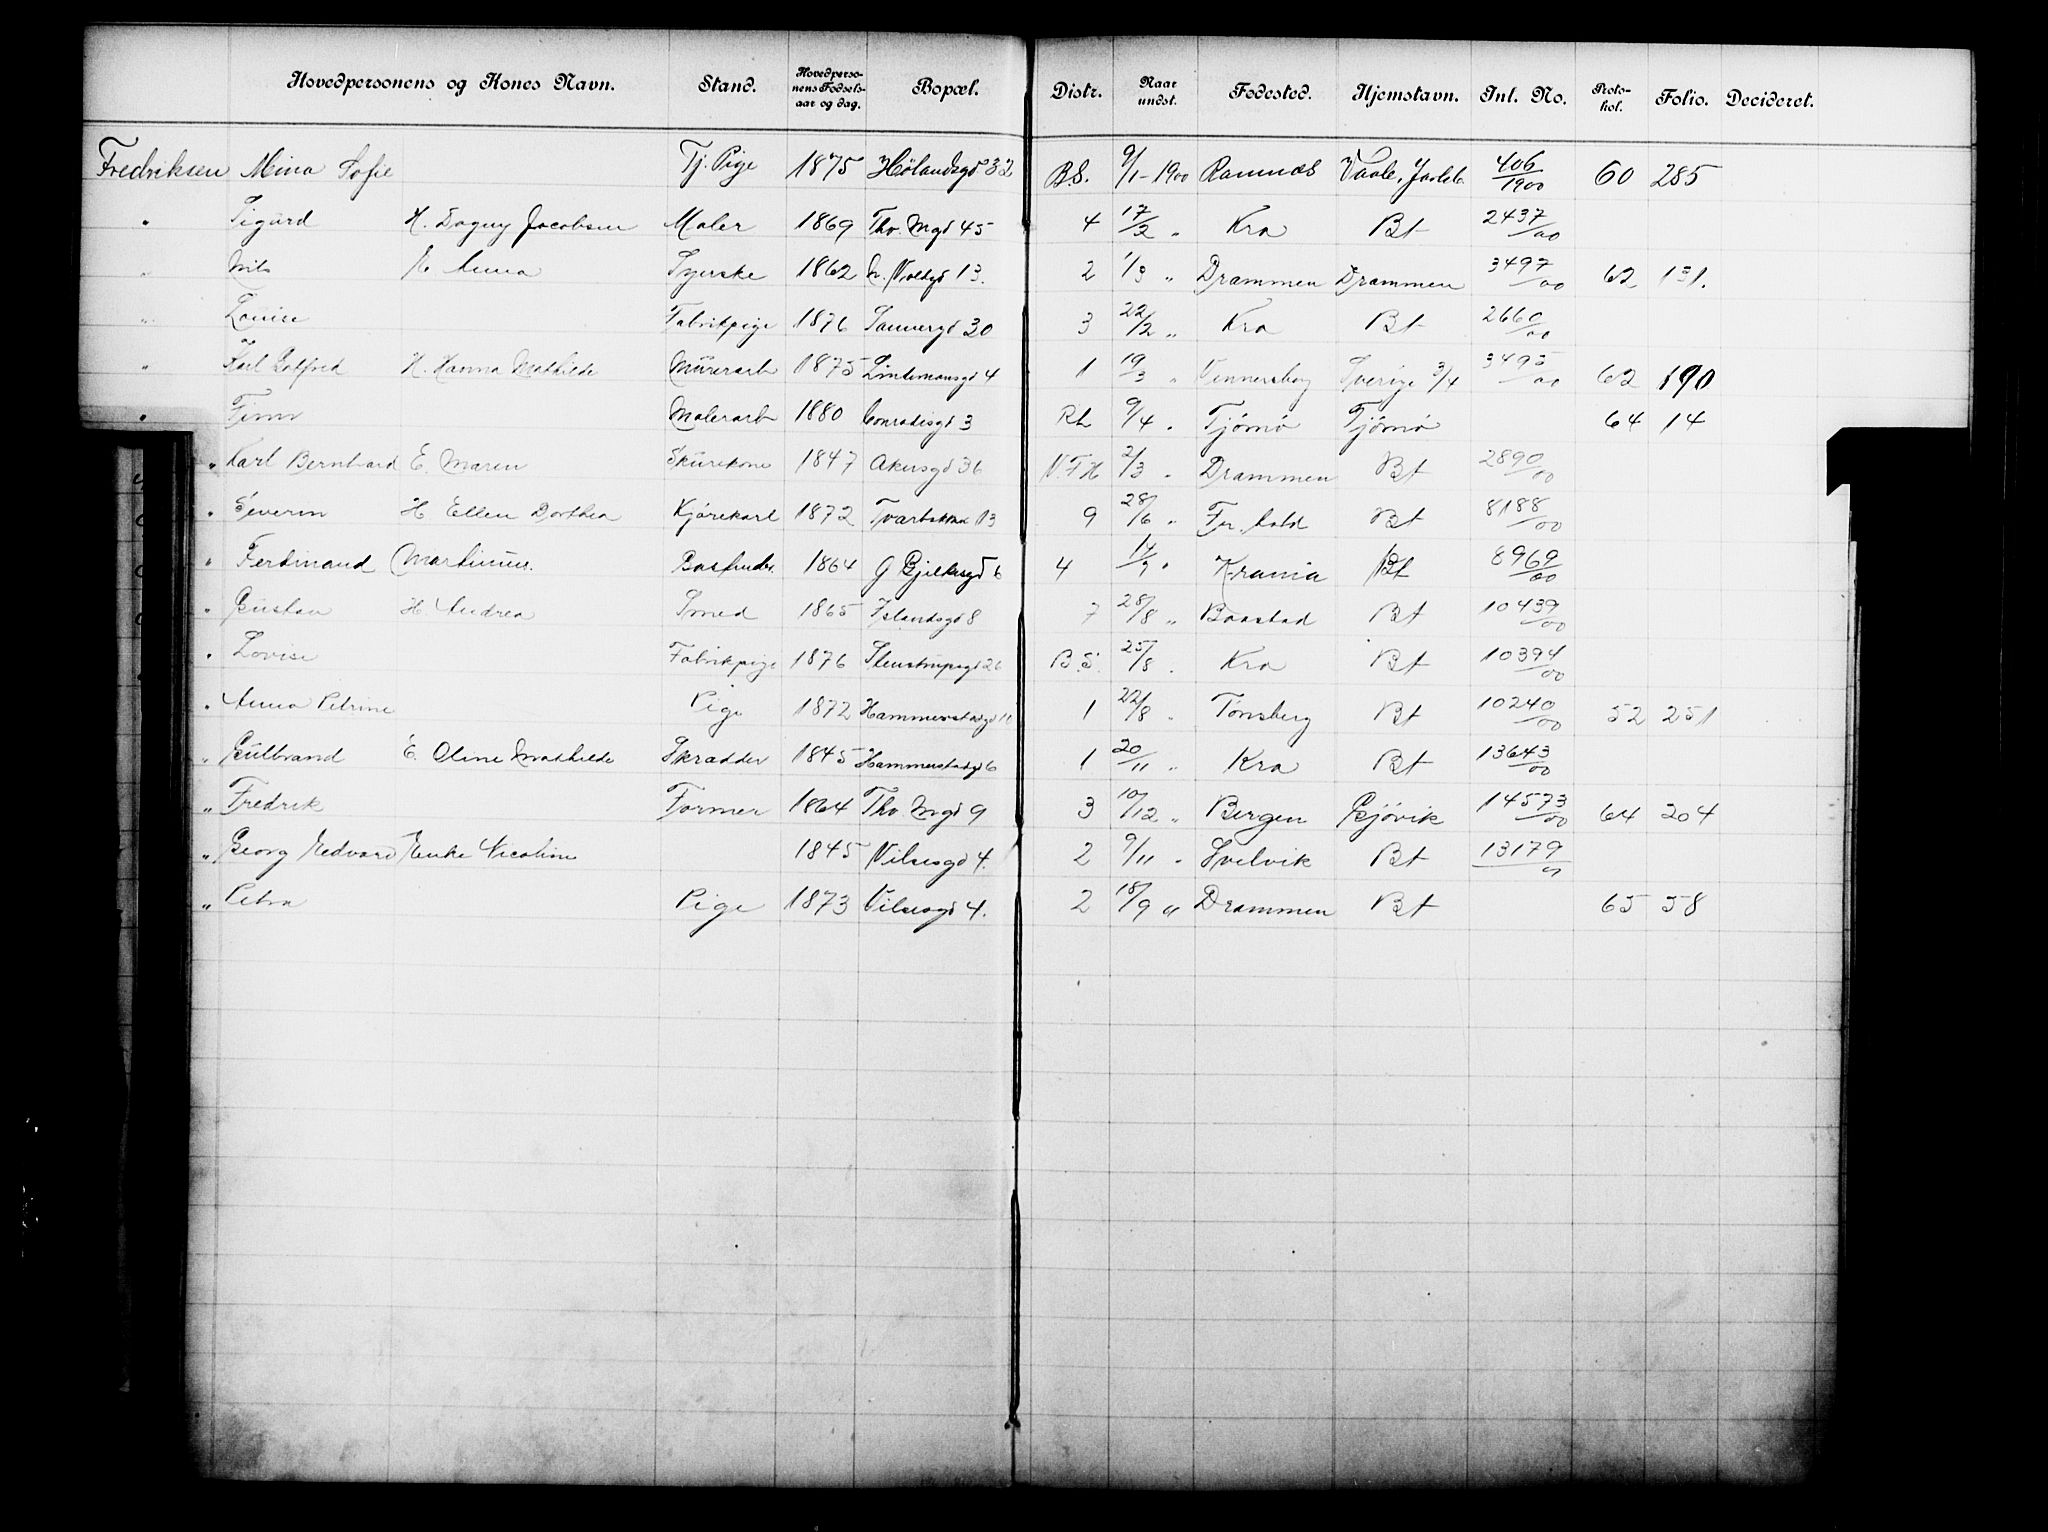 Hovedpersonens og Kones Navn. Stand. Hovedpersonens Fødselsaar og dag. Bopæl. Distr. Naar undst. Fødested. Hjemstavn. Int. No. Protokol. Folio. Decideret.
Fredriksen Mina Sofie Tj. Pige 1875 Hölandsgd 32 B.S. 9/1-1900 Ramnæs Vaale, Jarlsb. 406/1900 60 285
" Sigurd H. Dagny Jacobsen Maler 1869 Thv. Mgd 45 4 17/2 " Kra Bt 2437/00
" Nils H Anna Syerske 1862 N. Voldgd 13. 2 1/3 " Drammen Drammen 3497/00 62 131.
" Louise Fabrikpige 1876 Sannergd 30 3 22/2 " Kra Bt 2660/00
" Karl Gotfred H. Hanna Mathilde Murerarb 1875 Lindemansgd 4 1 19/3 " Vennersborg Sverige 3/4 3495/00 62 190
" Finn Malerarb 1880 Conradisgd 3 Rh 9/4 " Tjömö Tjömö 64 14
" Karl Bernhard E. Maren Skurekone 1847 Akersgd 36 V.F.H 2/3 " Drammen Bt 2890/00
" Severin H Ellen Dorthea Kjörekarl 1872 Tværbakken 13 9 28/6 " Fr. hald Bt 8188/00
" Ferdinand Martinius. 1864 G Bjelkesgd 6 4 17/7 " Krania Bt 8969/00
" Gustav H. Andrea Smed 1865 Islandsgd 8 7 28/8 " Baastad Bt 10439/00
" Lovise Fabrikpige 1876 Stenstrupsgd 26 B.S. 25/8 " Kra Bt 10394/00
" Anna Petrine Pige 1872 Hammerstadgd 11 1 22/8 " Tönsberg Bt 10240/00 52 251
" Gulbrand E. Oline Mathilde Skrædder 1845 Hammerstadgd 6 1 20/11 " Kra Bt 13643/00
" Fredrik Former 1864 Thv. Mgd 9 3 10/12 " Bergen Gjövik 14573/00 64 204
" Georg Edvard Enke Nicoline 1845 Vilsesgd 4. 2 9/11 " Svelvik Bt 13179/00
" Petra Pige 1873 Vilsesgd 4. 2 18/9 " Drammen Bt 65 58